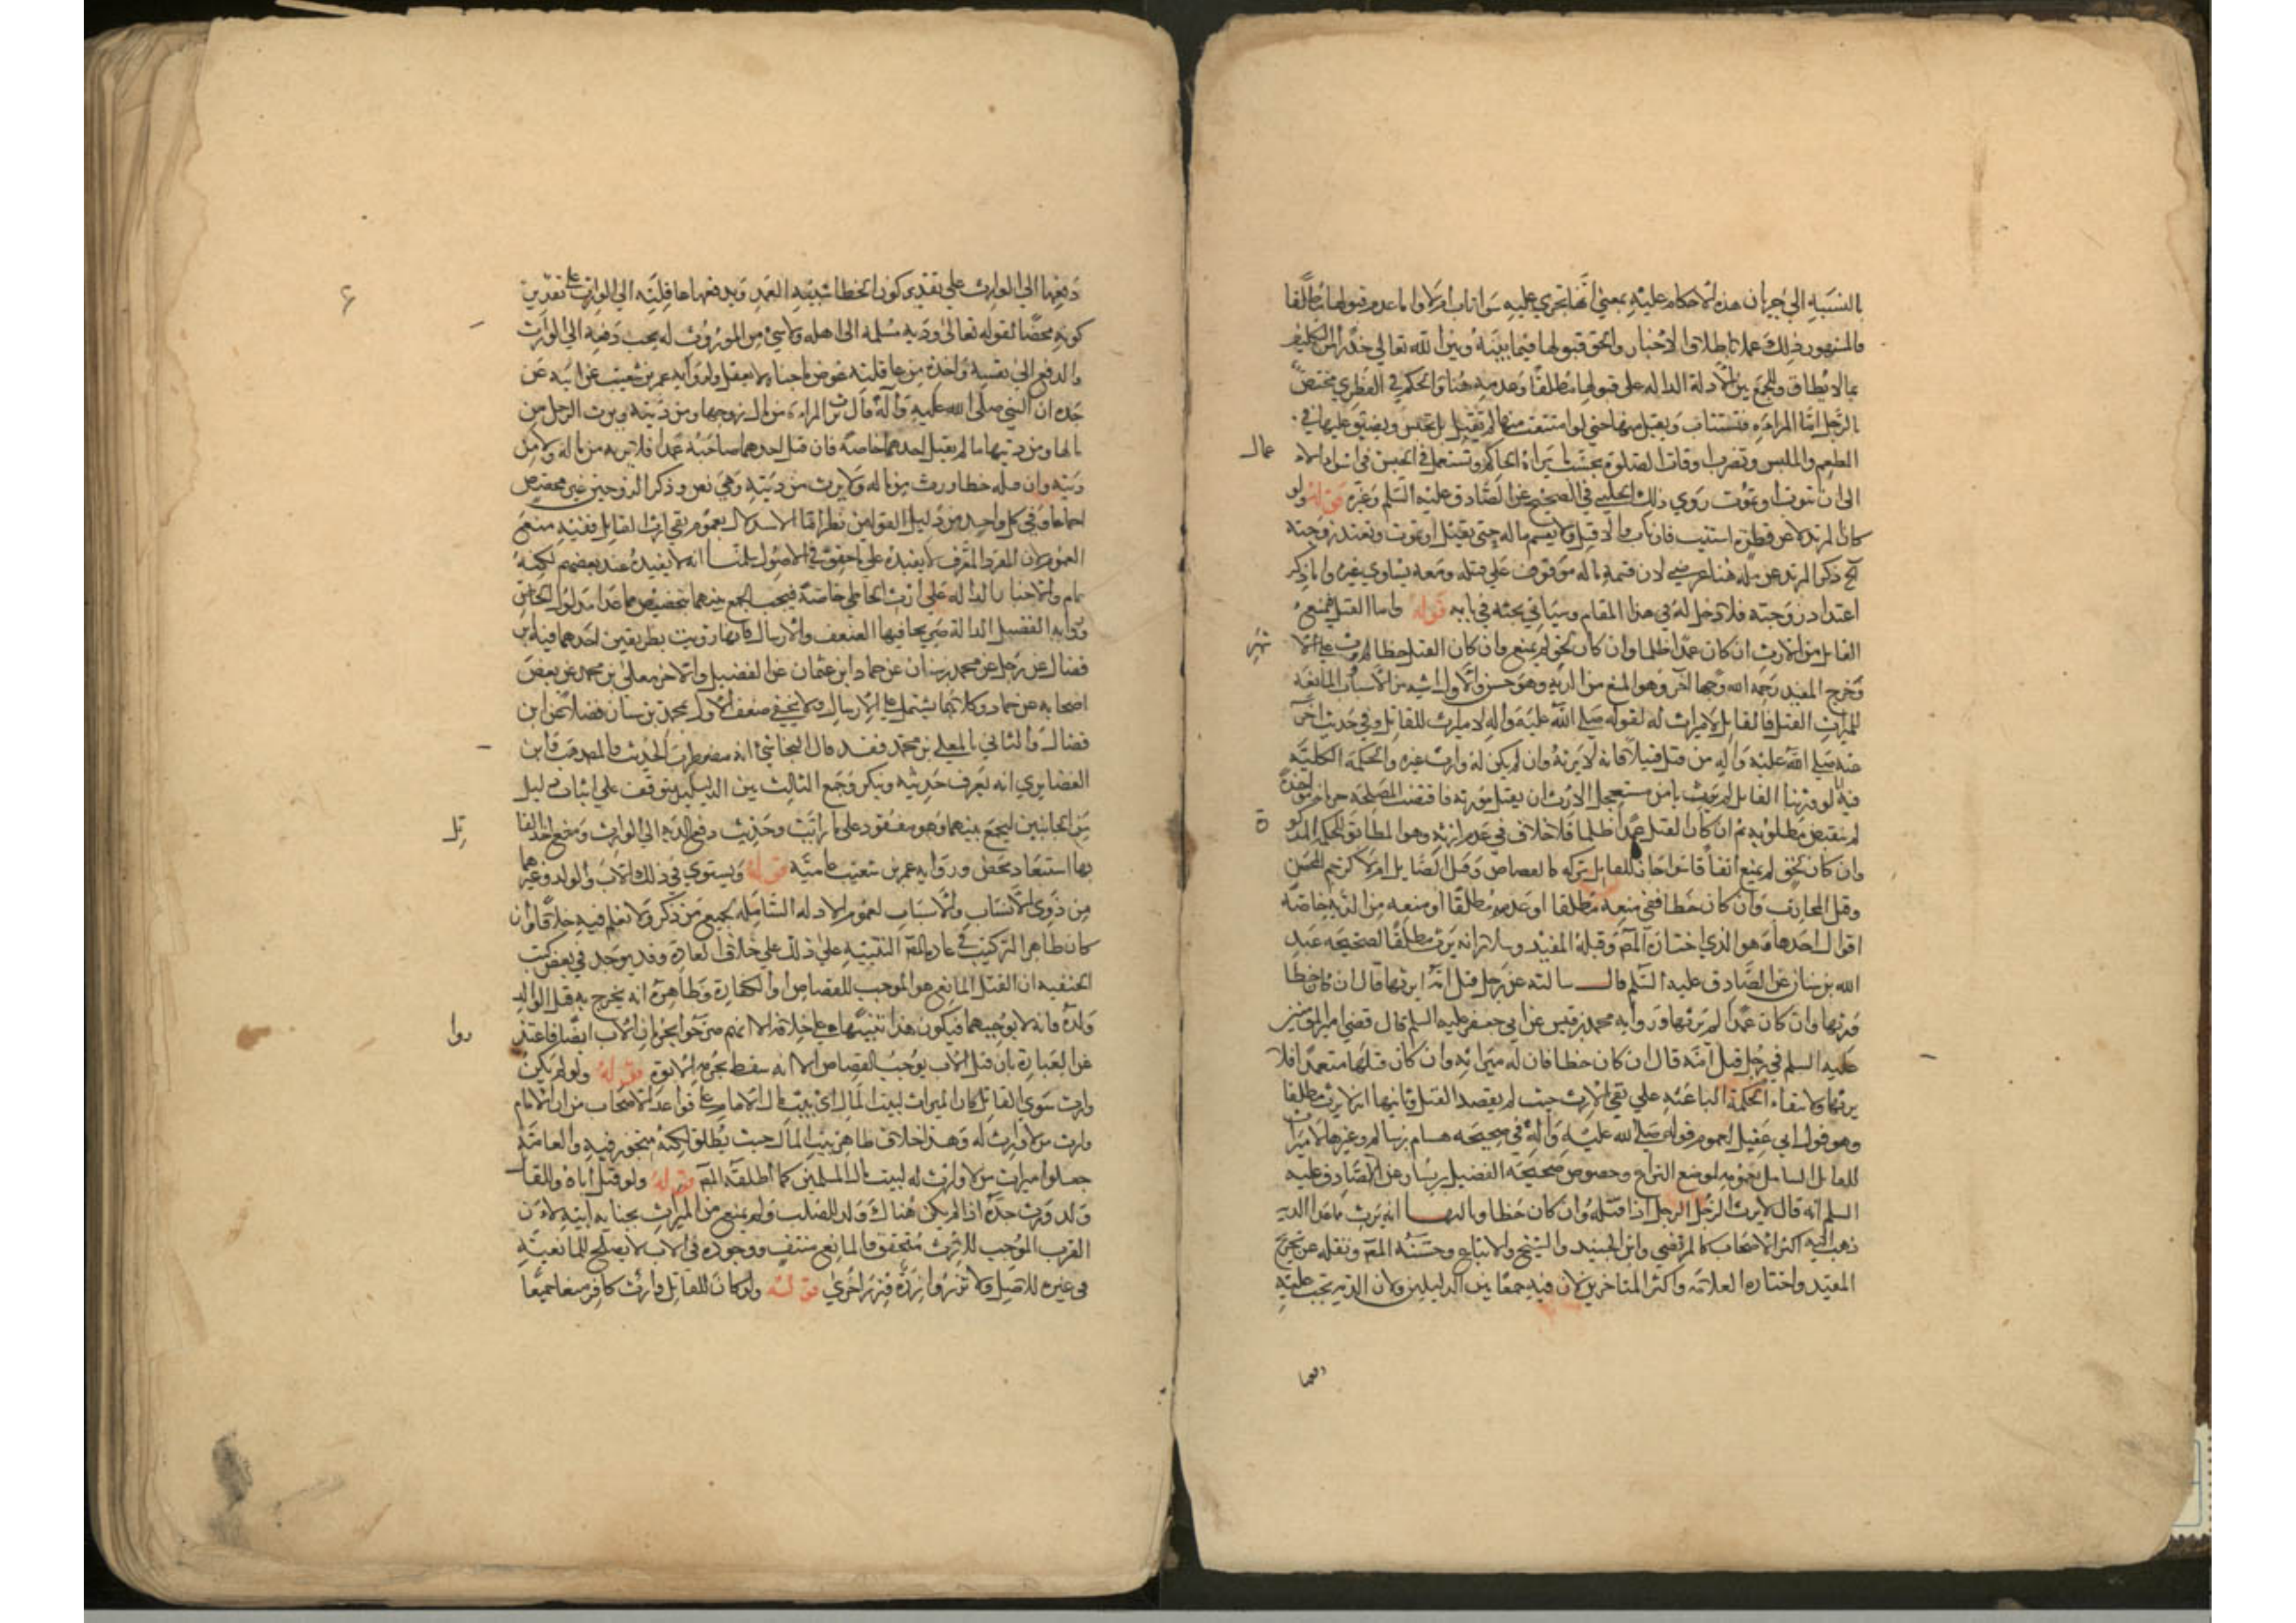 بالنسبة الي جريان هذه الاحكام عليه بمعني انها تجري عليه سوا تاب ام لا واما عدم قبولها مطلقا
فالمشهور ذلك عملا باطلاق الاخبار والحق قبولها فيما بينه وبين الله تعالي حذرا من التكليف
بما لا يطاق وللجمع بين الادلة الدالة علي قبولها مطلقا وعدمه هنا والحكم في الفطري مختص
بالرجل امّا المراءة فتستتاب ويقبل منها حتي لو امتنعت منها لم تقتل بل تحبس ويضيق عليها في
الطعم والملبس وتضرب اوقات الصلوة بحسب ما يراه الحاكم وتستعمل في الحبس في اسوا الاعمال
الي ان تتوب او تموت روي ذلك الحلبي في الصحيح عن الصادق عليه السلم وغيره قوله ولو
كان المرتد لا عن فطرة استتيب فان تاب والا قتل ولا يقسم ماله حتي يقتل او يموت وتعتد زوجته
الخ ذكر المرتد عن ملة هنا عرضي لان قسمة ماله موقوف علي قتله ومعه يساوي غيره واما ذكر
اعتداد زوجته فلا دخل له في هذا المقام وسياتي بحثه في بابه قوله واما القتل فيمنع
القاتل من الارث ان كان عمدا ظلما وان كان بحق لم يمنع وان كان القتل خطا لم يرث علي الاشهر
وخرج المفيد رحمه الله وجها آخر وهو المنع من الدية وهو حسن والاول اشبه من الاسباب المانعة
للميراث القتل فالقاتل لا ميراث له لقوله صلي الله عليه واله لا ميراث للقاتل وفي حديث اخر
عنه صلي الله عليه واله من قتل قتيلا فانه لا يرثه وان لم يكن له وارث غيره والحكمة الكلية
فيه انا لو ورثنا القاتل لم يومن مستعجل الارث ان يقتل مورثه فاقتضت المصلحة حرمانه مواخذة
له بنقيض مطلوبه ثم ان كان القتل عمدا ظلما فلا خلاف في عدم ارثه وهو المطابق للحكمة المذكورة
وان كان بحق لم يمنع اتفاقا سوا جاز للقاتل تركه كالقصاص وقتل الصايل ام لا كرجم المحصن
وقتل المحارب وان كان خطا ففي منعه مطلقا او عدمه مطلقا او منعه من الدية خاصة
اقوال احدها وهو الذي اختاره المصّ وقبله المفيد وسلار انه يرث مطلقا لصحيحة عبد
الله بن سنان عن الصادق عليه السلم قال سالته عن رجل قتل امّه ايرثها قال ان كان خطا
ورثها وان كان عمدا لم يرثها ورواية محمد بن قيس عن ابي جعفر عليه السلم قال قضي امير المومنين
عليه السلم في رجل قتل امّه قال ان كان خطا فان له ميراثه وان كان قتلها متعمدا فلا
يرثها ولانتفاء الحكمة الباعثة علي نفي الارث حيث لم يقصد القتل وثانيها انه لا يرث مطلقا
وهو قول ابن ابي عقيل لعموم قوله صلي الله عليه واله في صحيحة هشام بن سالم وغيرها لا ميراث
للقاتل الشامل بعمومه لموضع النزاع وخصوص صحيحة الفضيل بن يسار عن الصادق عليه
السلم انه قال لا يرث الرجل الرجل اذا قتله وان كان خطا وثالثها انه يرث ما عدا الدية
ذهب اليه اكثر الاصحاب كالمرتضي وابن الجنيد والشيخ والاتباع وحسنه المصّ ونقله عن تخريج
المفيد واختاره العلامة واكثر المتاخرين لان فيه جمعا بين الدليلين ولان الدية يجب عليه
دفعها
دفعها الي الوارث علي تقدير كون الخطا شبيه العمد ويدفعها عاقلته الي الوارث علي تقدير
كونه محضا لقوله تعالي ودية مسلمة الي اهله ولا شيء من الموروث له يجب دفعه الي الوارث
والدفع الي نفسه واخذه من عاقلته عوض ما جناه لا يعقل ولرواية عمر بن شعيب عن ابيه عن
جده ان النبي صلي الله عليه وآله قال ترث المراءة من مال زوجها ومن ديته ويرث الرجل من
مالها ومن ديتها ما لم يقتل احدهما صاحبه فان قتل احدهما صاحبه عمدا فلا يرثه من ماله ولا من
ديته وان قتله خطا ورث من ماله ولا يرث من ديته وهي نص وذكر الزوجين غير مخصص
اجماعا وفي كل واحد من دليل القولين نظر امّا الاستدلال بعموم نفي ارث القاتل ففيه منع
العموم لان المفرد المعرف لا يفيده علي ما حقق في الاصول سلمنا انه لا يفيده عند بعضهم لكنه
عام والاخبار الدالة علي ارث الخاطي خاصة فيجب الجمع بينهما بتخصيص العام بما عدا مدلول الخاص
ورواية الفضيل الدالة صريحا فيها الضعف والارسال فانها رويت بطريقين احدهما فيه ابن
فضال عن رجل عن محمد بن سنان عن حماد ابن عثمان عن الفضيل والاخر معلي بن محمد عن بعض
اصحابه عن حماد وكلاهما يشتمل علي الارسال ولا يخفي ضعف الاول بمحمد بن سنان فضلا عن ابن
فضال والثاني بالمعلي بن محمد فقد قال النجاشي انه مضطرب الحديث والمذهب وابن
الغضايري انه يعرف حديثه وينكر وجمع الثالث بين الدليلين يتوقف علي اثبات دليل
من الجانبين ليجمع بينهما وهو مفقود علي ما رايت وحديث دفع الدية الي الوارث ومنع اخذ القاتل
بها استبعاد محض ورواية عمر بن شعيب عامية قوله ويستوي في ذلك الاب والولد وغيرهما
من ذوي الانساب والاسباب لعموم الادلة الشاملة لجميع من ذكر ولا نعلم فيه خلافا وان
كان ظاهر التركيب في عادة المصّ التنبيه علي ذلك علي خلاف العادة وقد يوجد في بعض كتب
الحنفية ان القتل المانع هو الموجب للقصاص او الكفارة وظاهره انه يخرج به قتل الوالد
ولده فانه لا يوجبهما فيكون هذا تنبيها علي خلافه الا انهم صرحوا بحرمان الاب ايضا فاعتذروا
عن العبارة بان قتل الاب يوجب القصاص الا انه سقط بحرمة الابوة قوله ولو لم يكن
وارث سوي القاتل كان الميراث لبيت المال اي بيت مال الامام علي قواعد الاصحاب من ان الامام
وارث من لا وارث له وهذا خلاف ظاهر بيت المال حيث يطلق لكنه متجوز فيه والعامة
جعلوا ميراث من لا وارث له لبيت مال المسلمين كما اطلقه المصّ قوله ولو قتل اباه وللقاتل
ولد ورث جده اذا لم يكن هناك ولد للصلب ولم يمنع من الميراث بجناية ابيه لان
القرب الموجب للارث متحقق والمانع منتف ووجوده في الاب لا يصلح للمانعية
في غيره للاصل ولا تزر وازرة وزر اخري قوله ولو كان للقاتل وارث كافر منعا جميعا